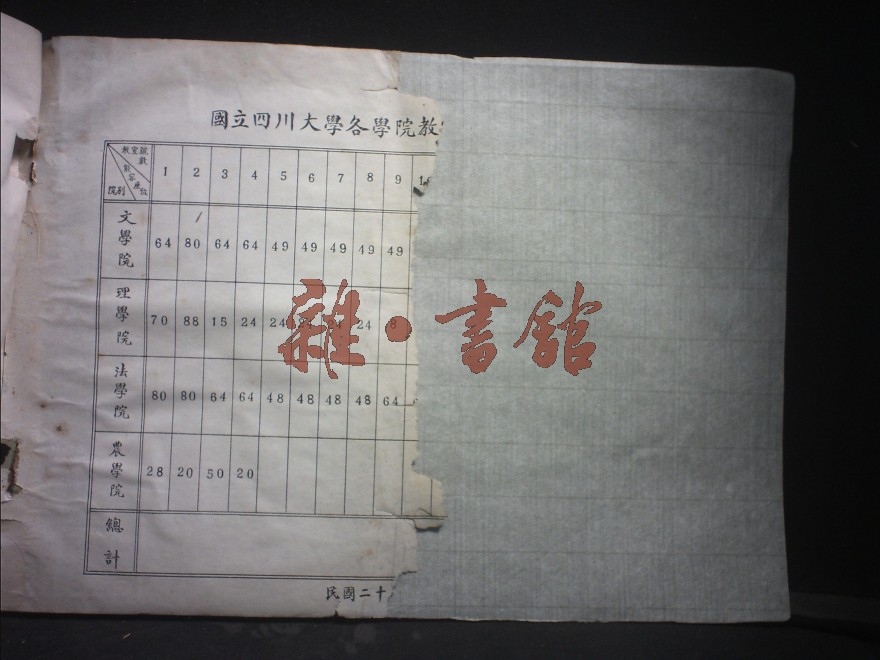 國立四川大學各學院教
教室號數 容座位數 院別 1 2 3 4 5 6 7 8 9
文學院 64 80 64 64 49 49 49 49 49
理學院 70 88 15 24 24 24
雜·書館
法學院 80 80 64 64 48 48 48 48 64
農學院 28 20 50 20
總計
民國二十